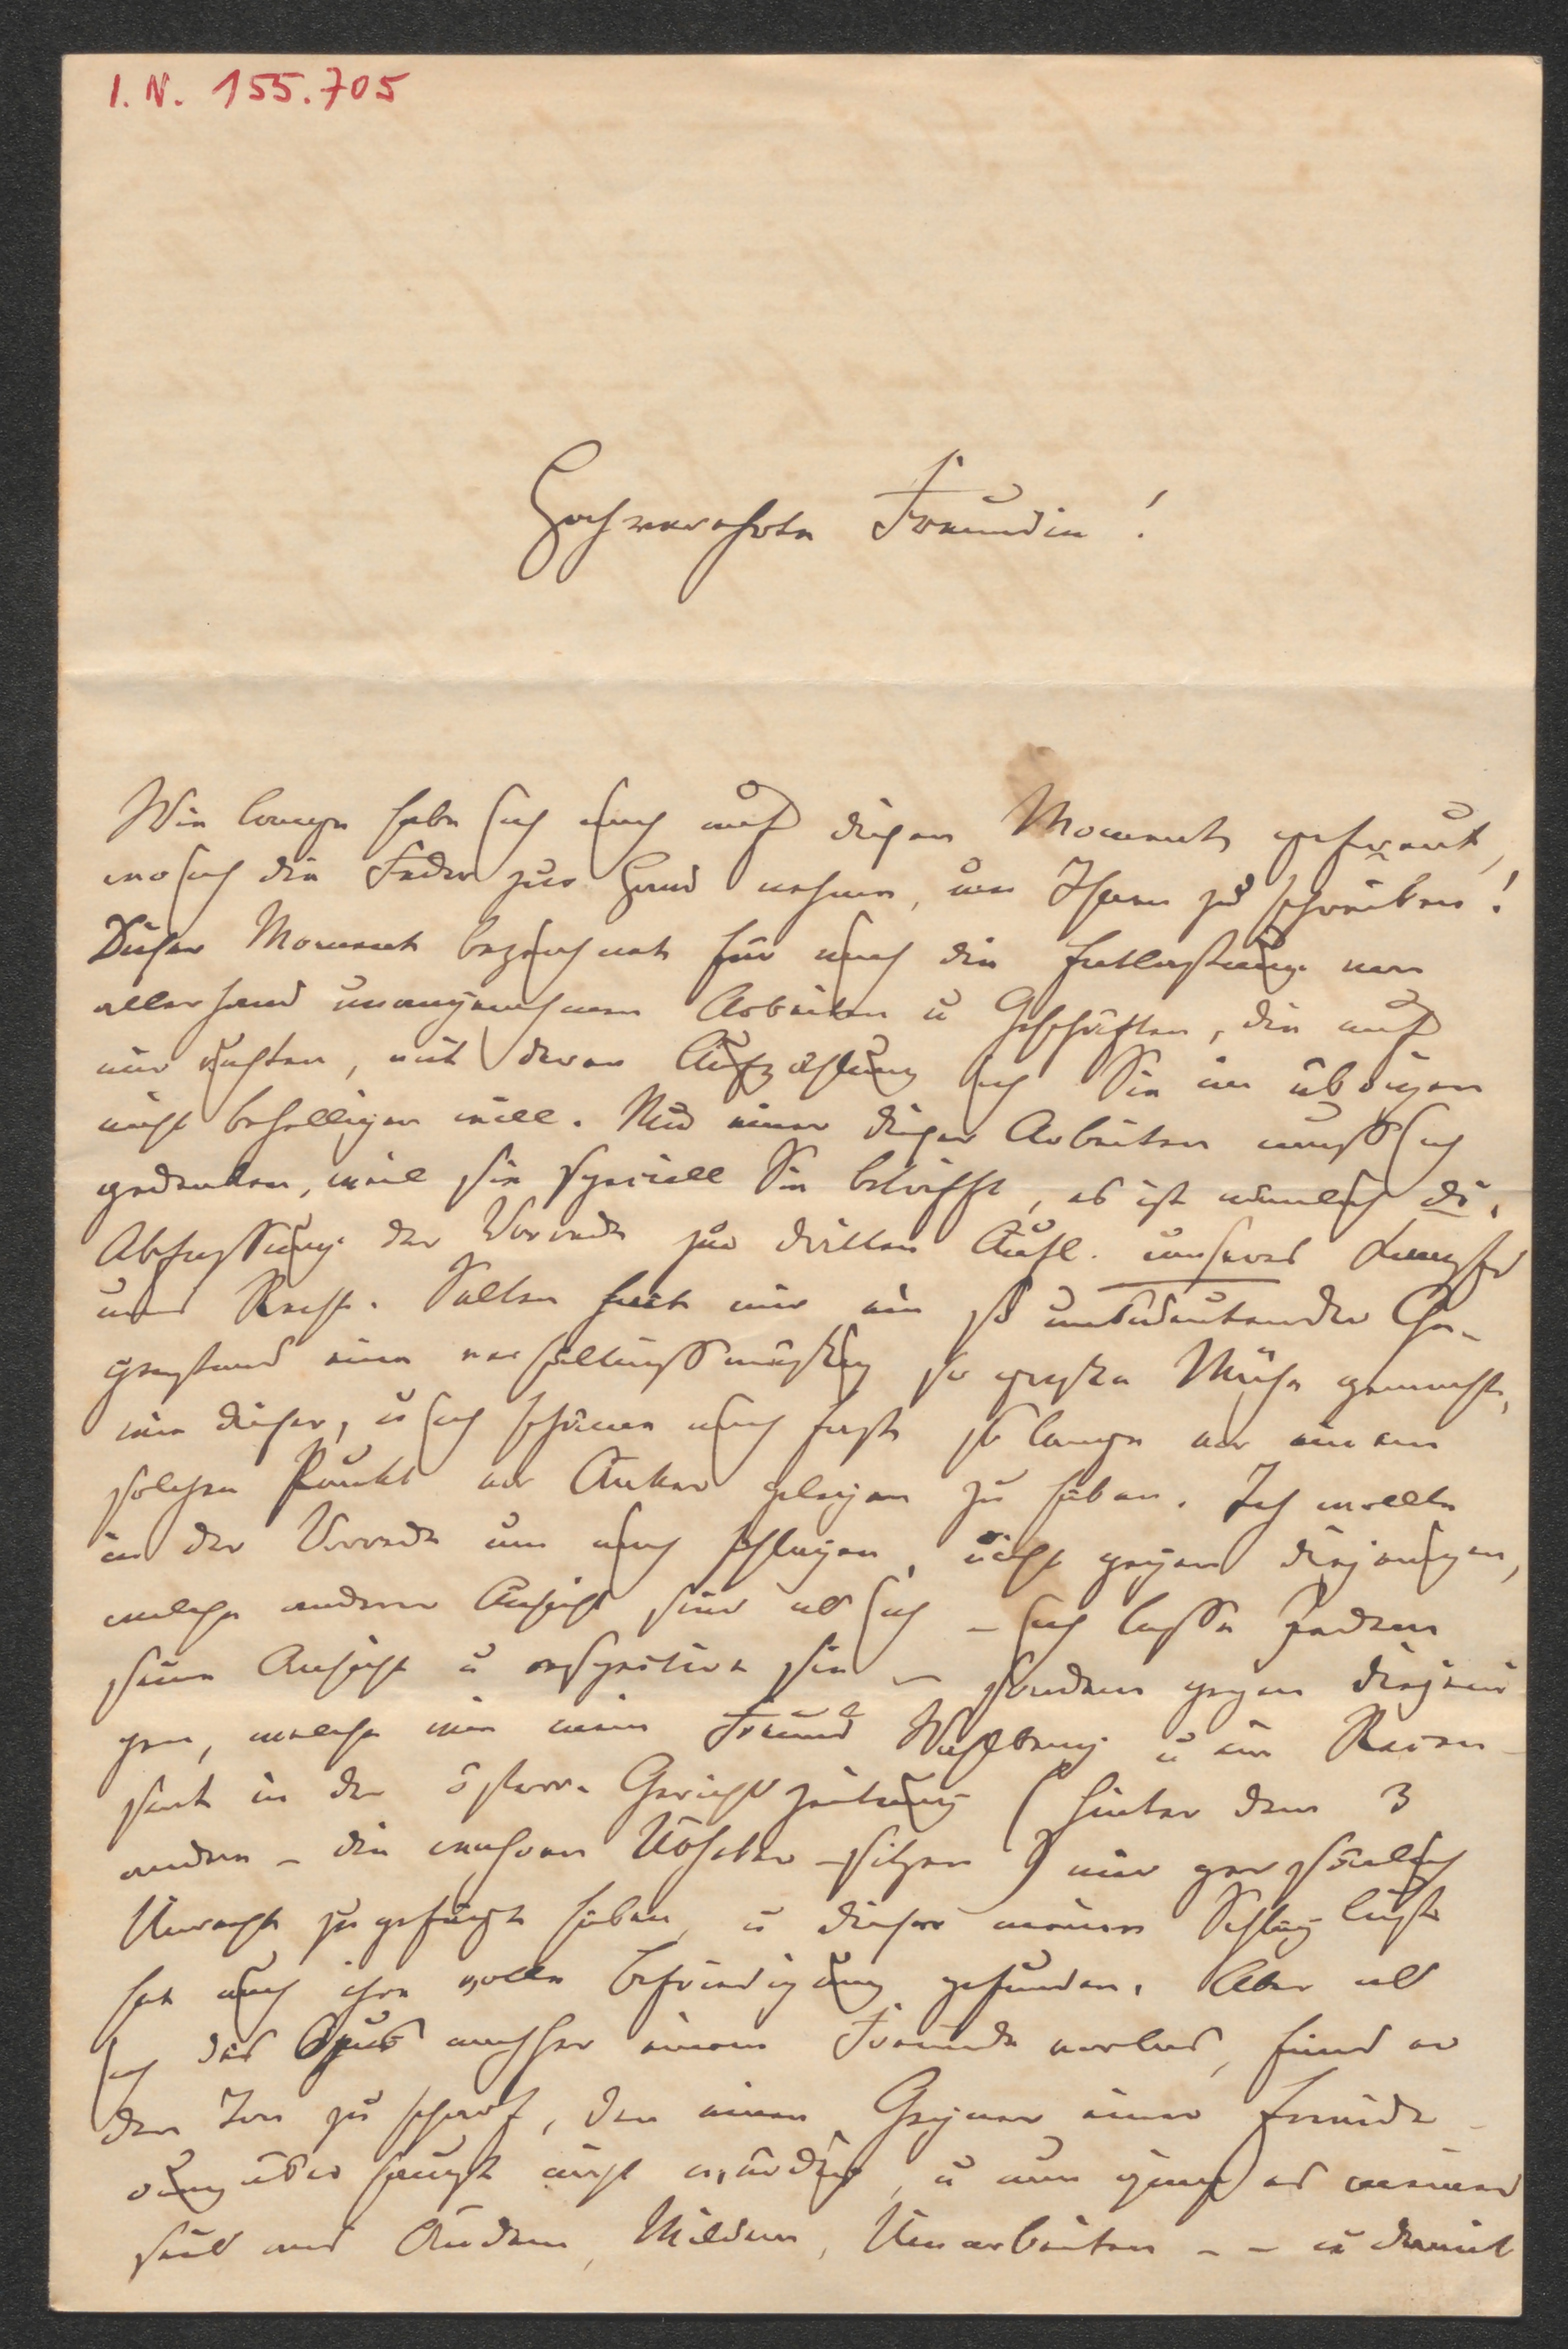 I. N. 155.705
Hochverehrte Freundin!
Wie lange habe ich mich auf diesen Moment gefreut,
wo ich die Feder zur Hand nehme, um Ihnen zu schreiben!
Dieser Moment bezeichnet für mich die Entlastung von
allerhand unangenehmen Arbeiten u Geschäften, die auf
mir lasten, mit deren Aufzählung ich Sie im übrigen
nicht behelligen will. Nur einer dieser Arbeiten muß ich
gedenken, weil sie speciell Sie betrifft, es ist nämlich die
Abfassung der Vorrede zur dritten Aufl. unseres Kampfes
ums Recht. Selten hat mir ein so unbedeutender Ge-
genstand eine verhältnißmäßig so große Mühe gemacht,
wie dieser, u ich schäme mich fast so lange vor einem
solchen Punkt vor Anker gelegen zu haben. Ich wollte
in der Vorrede um mich schlagen, nicht gegen diejenigen,
welche anderer Ansicht sind als ich – ich lasse Jedem
seine Ansicht u respectire sie – sondern gegen diejeni
gen, welche wie mein Freund u ein Recen-
sent in der österr. Gerichtszeitung (hinter dem 3
andere – die wahren – sitzen) mir persönlich
Unrecht zugefügt haben, u diese meine Schlaglust
hat auch ihre volle Befriedigung gefunden. Aber als
ich das Opus nachher einem Freunde vorlas, fand er
den Ton zu scharf, den einen Gegner einer Erwide-
rung überhaupt nicht würdig, u nun ging es meiner
seits ans Ändern, Mildern, Umarbeiten – – u damit